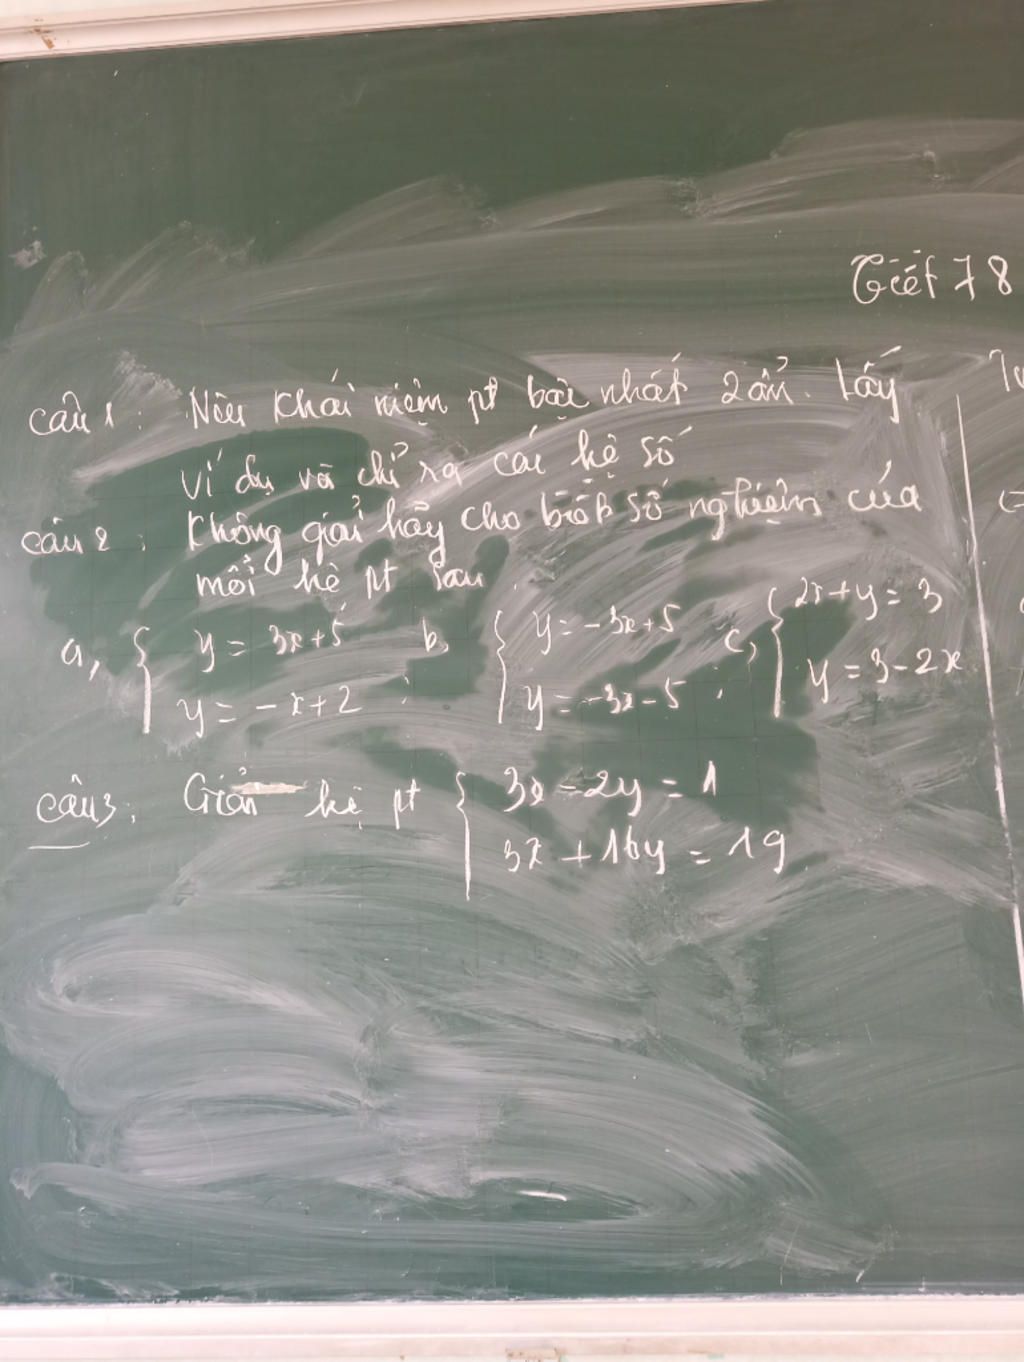 Tiết 78
Câu 1: Nêu khái niệm pt bậc nhất 2 ẩn. Lấy
ví dụ và chỉ ra các hệ số
Câu 2: Không giải hãy cho biết số nghiệm của
mỗi hệ pt sau
a, { y = 3x+5 ; b, { y = -3x+5 ; c, { 2x+y = 3
y = -x+2 y = -3x-5 y = 3-2x
Câu 3: Giải hệ pt { 3x - 2y = 1
3x + 16y = 19